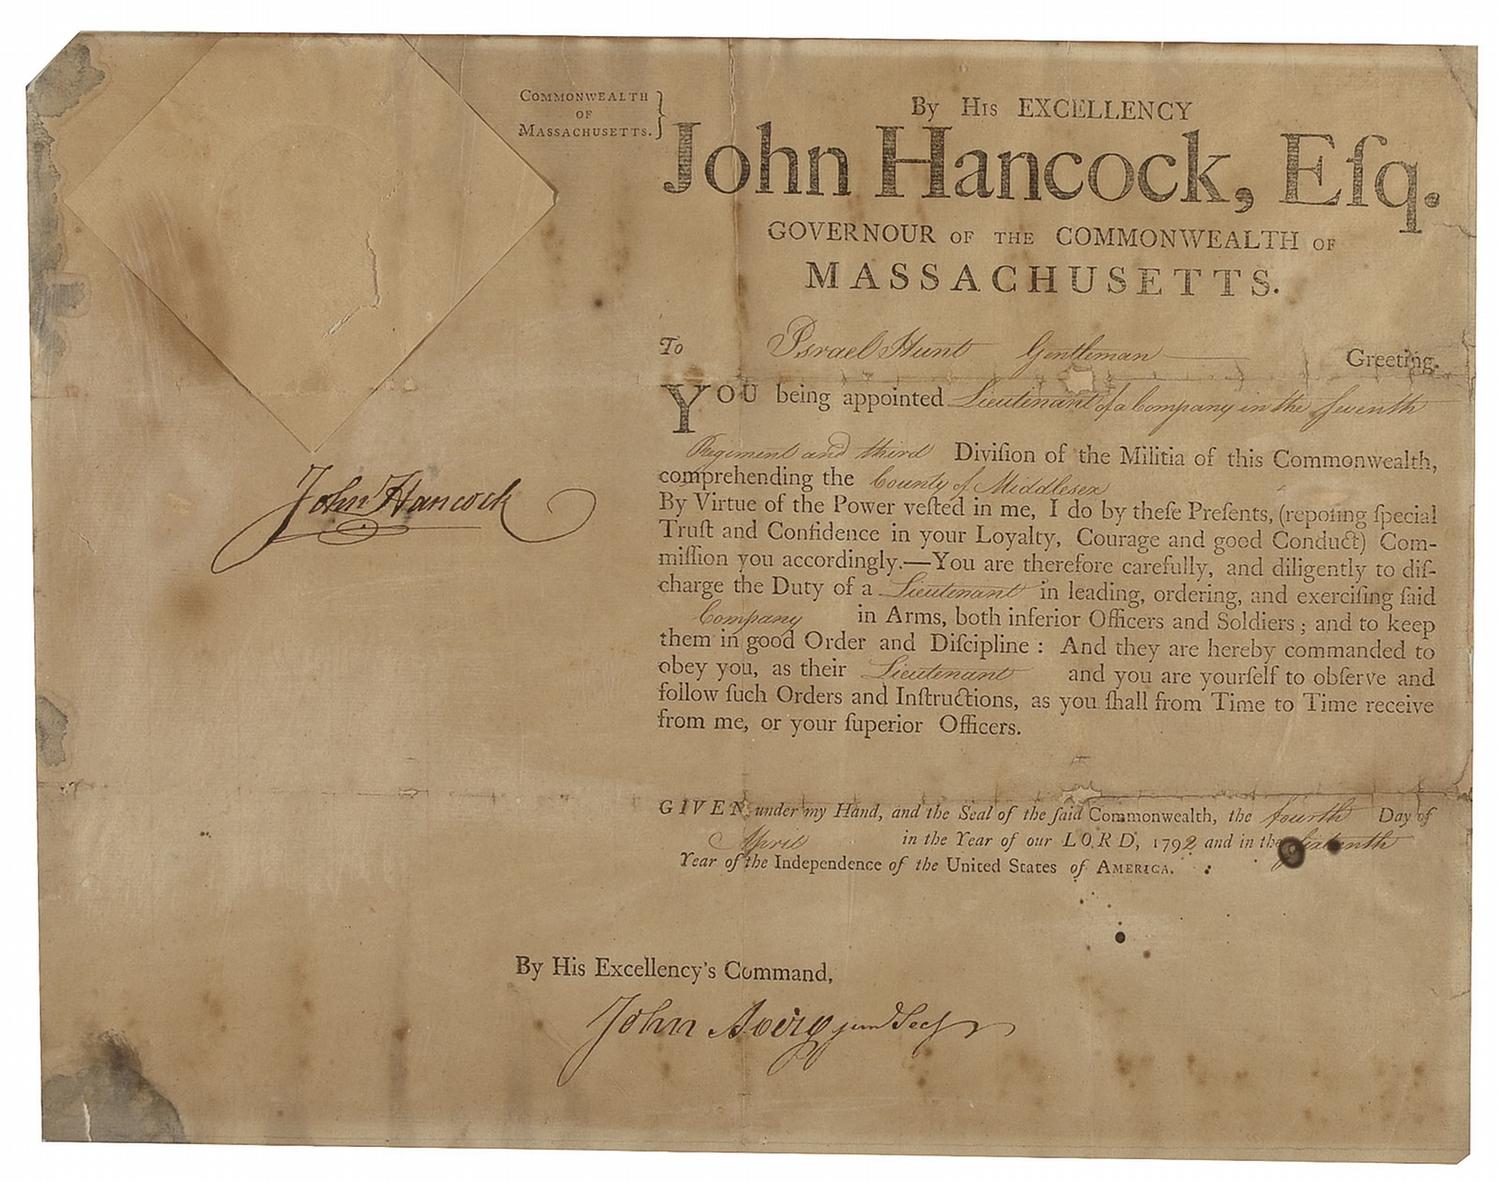 COMMONWEALTH
OF
MASSACHUSETTS. }
By His EXCELLENCY
John Hancock, Eſq.
GOVERNOUR OF THE COMMONWEALTH OF
MASSACHUSETTS.
To Israel Hunt Gentleman Greeting.
YOU being appointed Lieutenant of a Company in the Seventh
Regiment and third Diviſion of the Militia of this Commonwealth,
comprehending the County of Middlesex
By Virtue of the Power veſted in me, I do by theſe Preſents, (repoſing ſpecial
Truſt and Confidence in your Loyalty, Courage and good Conduct) Com-
miſſion you accordingly.—You are therefore carefully, and diligently to diſ-
charge the Duty of a Lieutenant in leading, ordering, and exerciſing ſaid
Company in Arms, both inferior Officers and Soldiers; and to keep
them in good Order and Diſcipline: And they are hereby commanded to
obey you, as their Lieutenant and you are yourſelf to obſerve and
follow ſuch Orders and Inſtructions, as you ſhall from Time to Time receive
from me, or your ſuperior Officers.
John Hancock
GIVEN under my Hand, and the Seal of the ſaid Commonwealth, the fourth Day of
April in the Year of our LORD, 1792 and in the Sixteenth
Year of the Independence of the United States of AMERICA.
By His Excellency's Command,
John Avery jun Secy